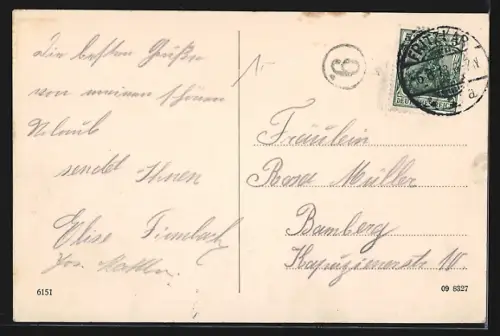 Die besten Grüße
von meinem schönen
Urlaub
sendet Ihnen
Elise
Fräulein
Rosa Müller
Bamberg
Kapuzinerstr 10.
6
DEUTSCHES REICH
6151
09 8327